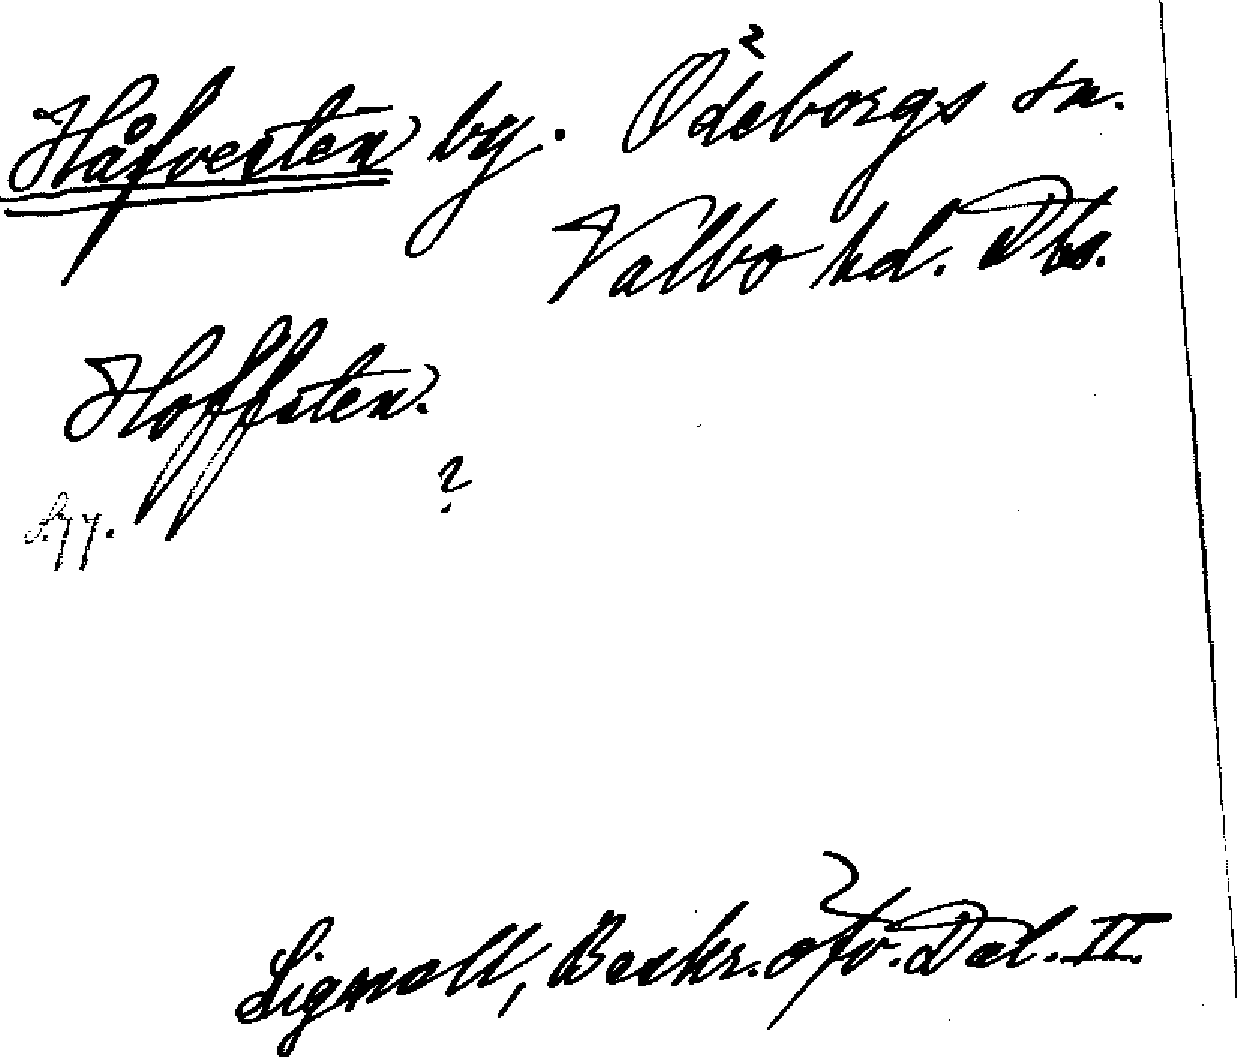 Håfvesten by. Ödeborgs sn.
Valbo hd. Dls.
Hoffsten.
?
Lignell, Beskr. öfv. Dal. II.